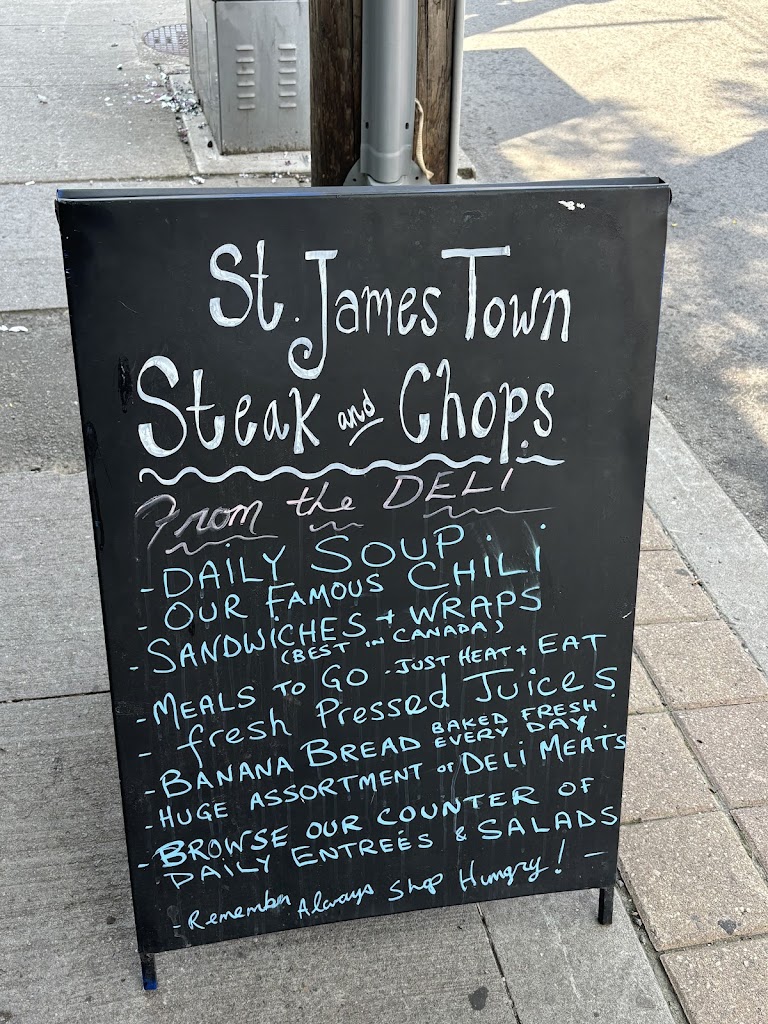 St. James Town
Steak and Chops
From the DELI
- DAILY SOUP.
- OUR FAMOUS CHILI
- SANDWICHES + WRAPS
(BEST IN CANADA)
- MEALS TO GO - JUST HEAT + EAT
- fresh Pressed Juices
- BANANA BREAD BAKED FRESH
EVERY DAY
- HUGE ASSORTMENT OF DELI MEATS
- BROWSE OUR COUNTER OF
DAILY ENTREÉS & SALADS
- Remember Always Shop Hungry! -